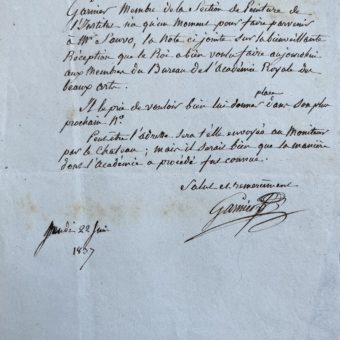 Garnier Membre de la Section de Peinture de
l'Institut n'a qu'un moment pour faire parvenir
à Mr Sauvo, la Note ci jointe sur la bienveillante
Réception que le Roi a bien voulu faire aujourdhui
aux Membres du Bureau de l'Académie Royale des
beaux arts.
Il le prie de vouloir bien lui donner place dans son plus
prochain No.
Peut être l'adresse sera t'elle envoyée au Moniteur
par le Chateau ; mais il serait bien que la manière
dont l'Académie a procédé fut connue.
Salut et remerciment
Garnier
Jeudi 22 Juin
1837